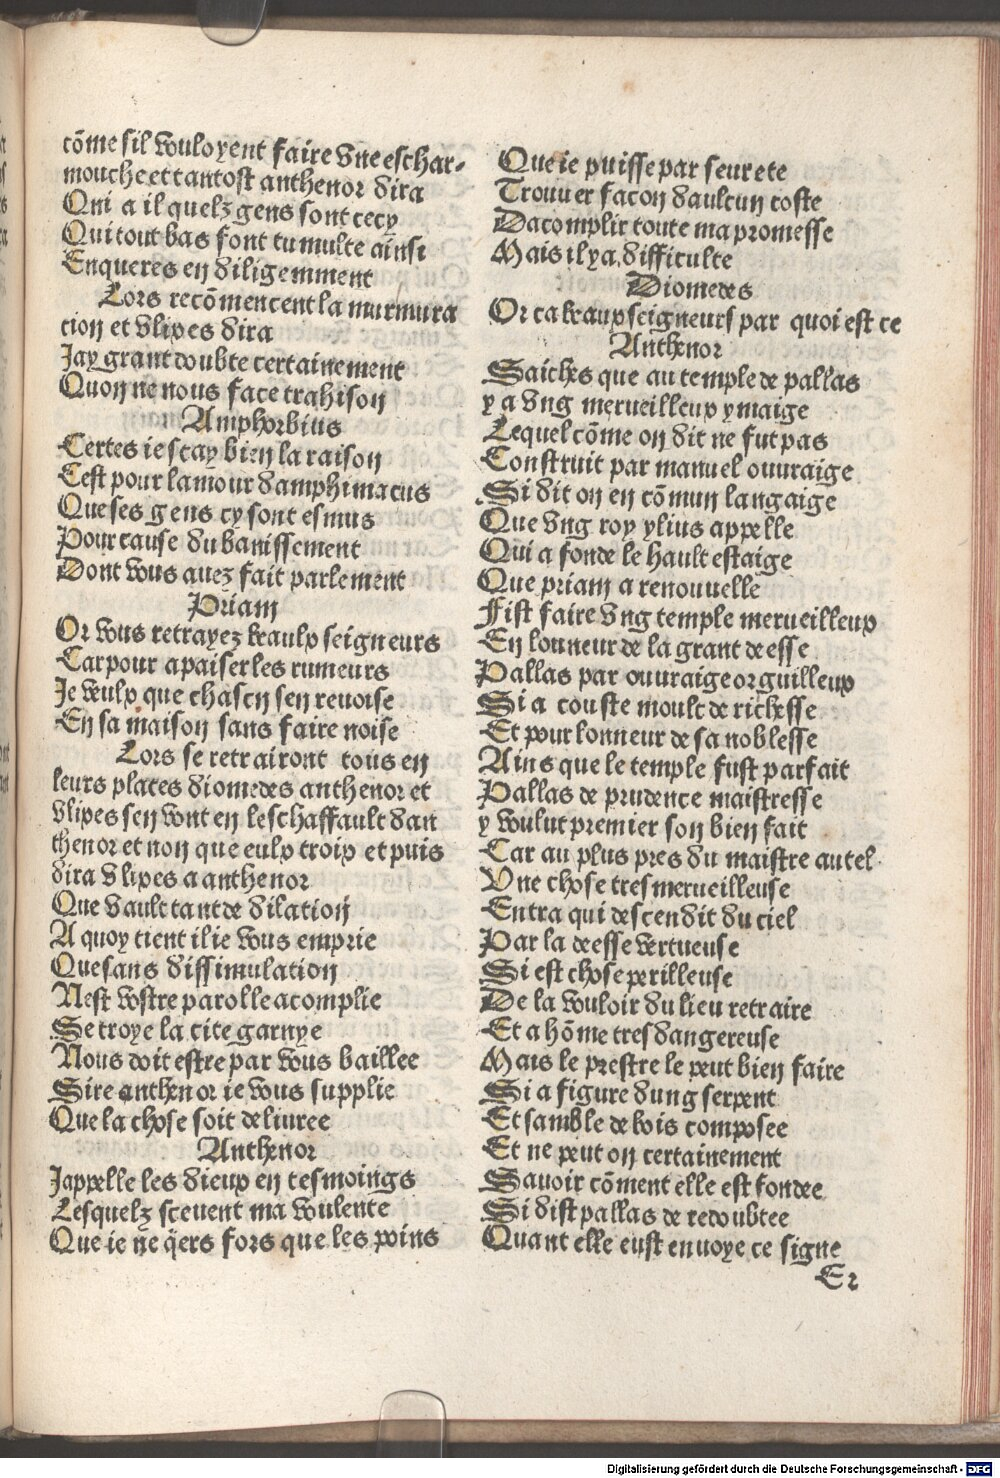 cõme sil vouloyent faire vne eschar-
mouche et tantost anthenor dira
Qui a il quelz gens sont cecy
Qui tout bas font tumulte ainsi
Enqueres en diligemment
Lors recõmencent la murmura
cion et vlixes dira
Jay grant doubte certainement
Quon ne nous face trahison
Amphorbius
Certes ie scay bien la raison
Cest pour lamour damphimacus
Que ses gens cy sont esmus
Pour cause du banissement
Dont vous auez fait parlement
Priam
Or vous retrayez beaulx seigneurs
Car pour apaiser les rumeurs
Je veulx que chascũ sen reuoise
En sa maison sans faire noise
Lors se retrairont tous en
leurs places diomedes anthenor et
vlixes sen vont en leschaffault dan
thenor et non que eulx troix et puis
dira vlixes a anthenor
Que vault tant de dilation
A quoy tient il ie vous emprie
Que sans dissimulation
Nest vostre parolle acomplie
Se troye la cite garnye
Nous doit estre par vous baillee
Sire anthenor ie vous supplie
Que la chose soit deliuree
Anthenor
Jappelle les dieux en tesmoings
Lesquelz sceuent ma voulente
Que ie ne q̃ers fors que les poins
Que ie puisse par seurete
Trouuer facon daulcun coste
Dacomplir toute ma promesse
Mais il ya difficulte
Diomedes
Or ca beaux seigneurs par quoi est ce
Anthenor
Saiches que au temple de pallas
y a vng merueilleux ymaige
Lequel cõme on dit ne fut pas
Construit par manuel ouuraige
Si dit on en cõmun langaige
Que vng roy ylius appelle
Qui a fonde le hault estaige
Que priam a renouuelle
Fist faire vng temple merueilleux
En lonneur de la grant deesse
Pallas par ouuraige orguilleux
Si a couste moult de richesse
Et pour lonneur de sa noblesse
Ains que le temple fust parfait
Pallas de prudence maistresse
y voulut premier son bien fait
Car au plus pres du maistre autel
Vne chose tres merueilleuse
Entra qui descendit du ciel
Par la deesse vertueuse
Si est chose perilleuse
De la vouloir du lieu retraire
Et a hõme tres dangereuse
Mais le prestre le peut bien faire
Si a figure dung serpent
Et samble de bois composee
Et ne peut on certainement
Sauoir cõment elle est fondee
Si dist pallas de redoubtee
Quant elle eust enuoye ce signe
E2
Digitalisierung gefördert durch die Deutsche Forschungsgemeinschaft - DFG